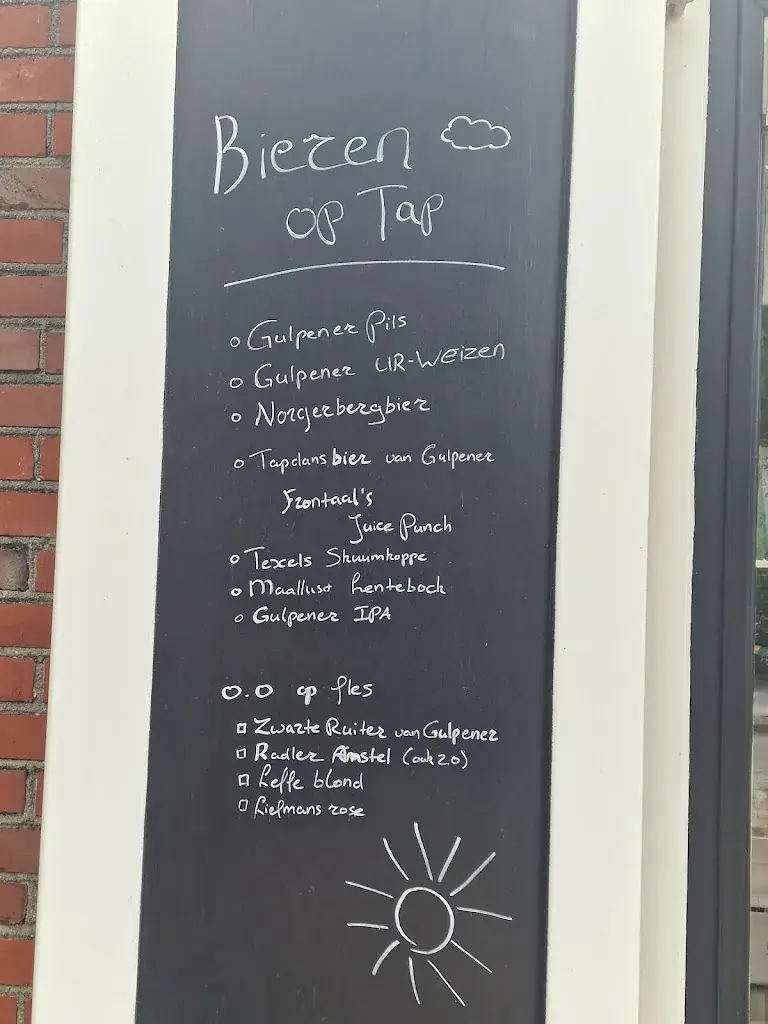 Bieren
op Tap
Gulpener Pils
Gulpener UR-WEIZEN
Norgerbergbier
Tapdansbier van Gulpener
Frontaal's
Juice Punch
Texels Skuumkoppe
Maallust Lentebock
Gulpener IPA
0.0 op fles
Zwarte Ruiter van Gulpener
Radler Amstel (ook 2.0)
Leffe blond
Liefmans rose